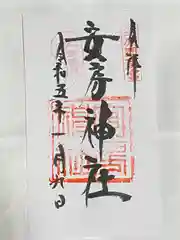 奉拝
安房神社
令和五年一月六日